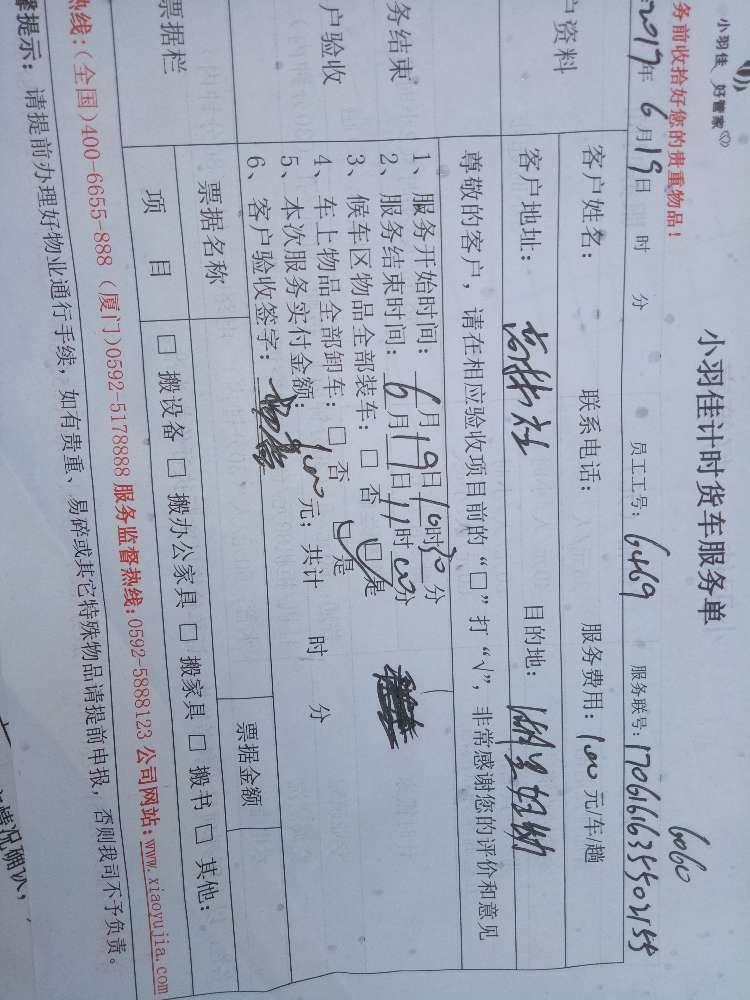 小羽佳 好管家
小羽佳计时货车服务单
务前收拾好您的贵重物品!
6060
2017年 6月19日 时 分 员工工号: 6469 服务联号: 17061616355402155
户资料
客户姓名: 联系电话: 服务费用: 100元/车/趟
客户地址: 目的地:
尊敬的客户,请在相应验收项目前的“□”打“√”,非常感谢您的评价和意见
务结束
户验收
1、服务开始时间: 6月19日10时30分
2、服务结束时间: 6月19日11时00分
3、候车区物品全部装车: □ 否 □ 是
4、车上物品全部卸车: □ 否 □ 是
5、本次服务实付金额: 100元; 共计 时 分
6、客户验收签字:
票据栏
票据名称 票据金额
项 目 □ 搬设备 □ 搬办公家具 □ 搬家具 □ 搬书 □ 其他:
热线:(全国)400-6655-888 (厦门)0592-5178888 服务监督热线:0592-5888123 公司网站:www.xiaoyujia.com
馨提示: 请提前办理好物业通行手续, 如有贵重、易碎或其它特殊物品请提前申报, 否则我司不予负责。
情况确认,